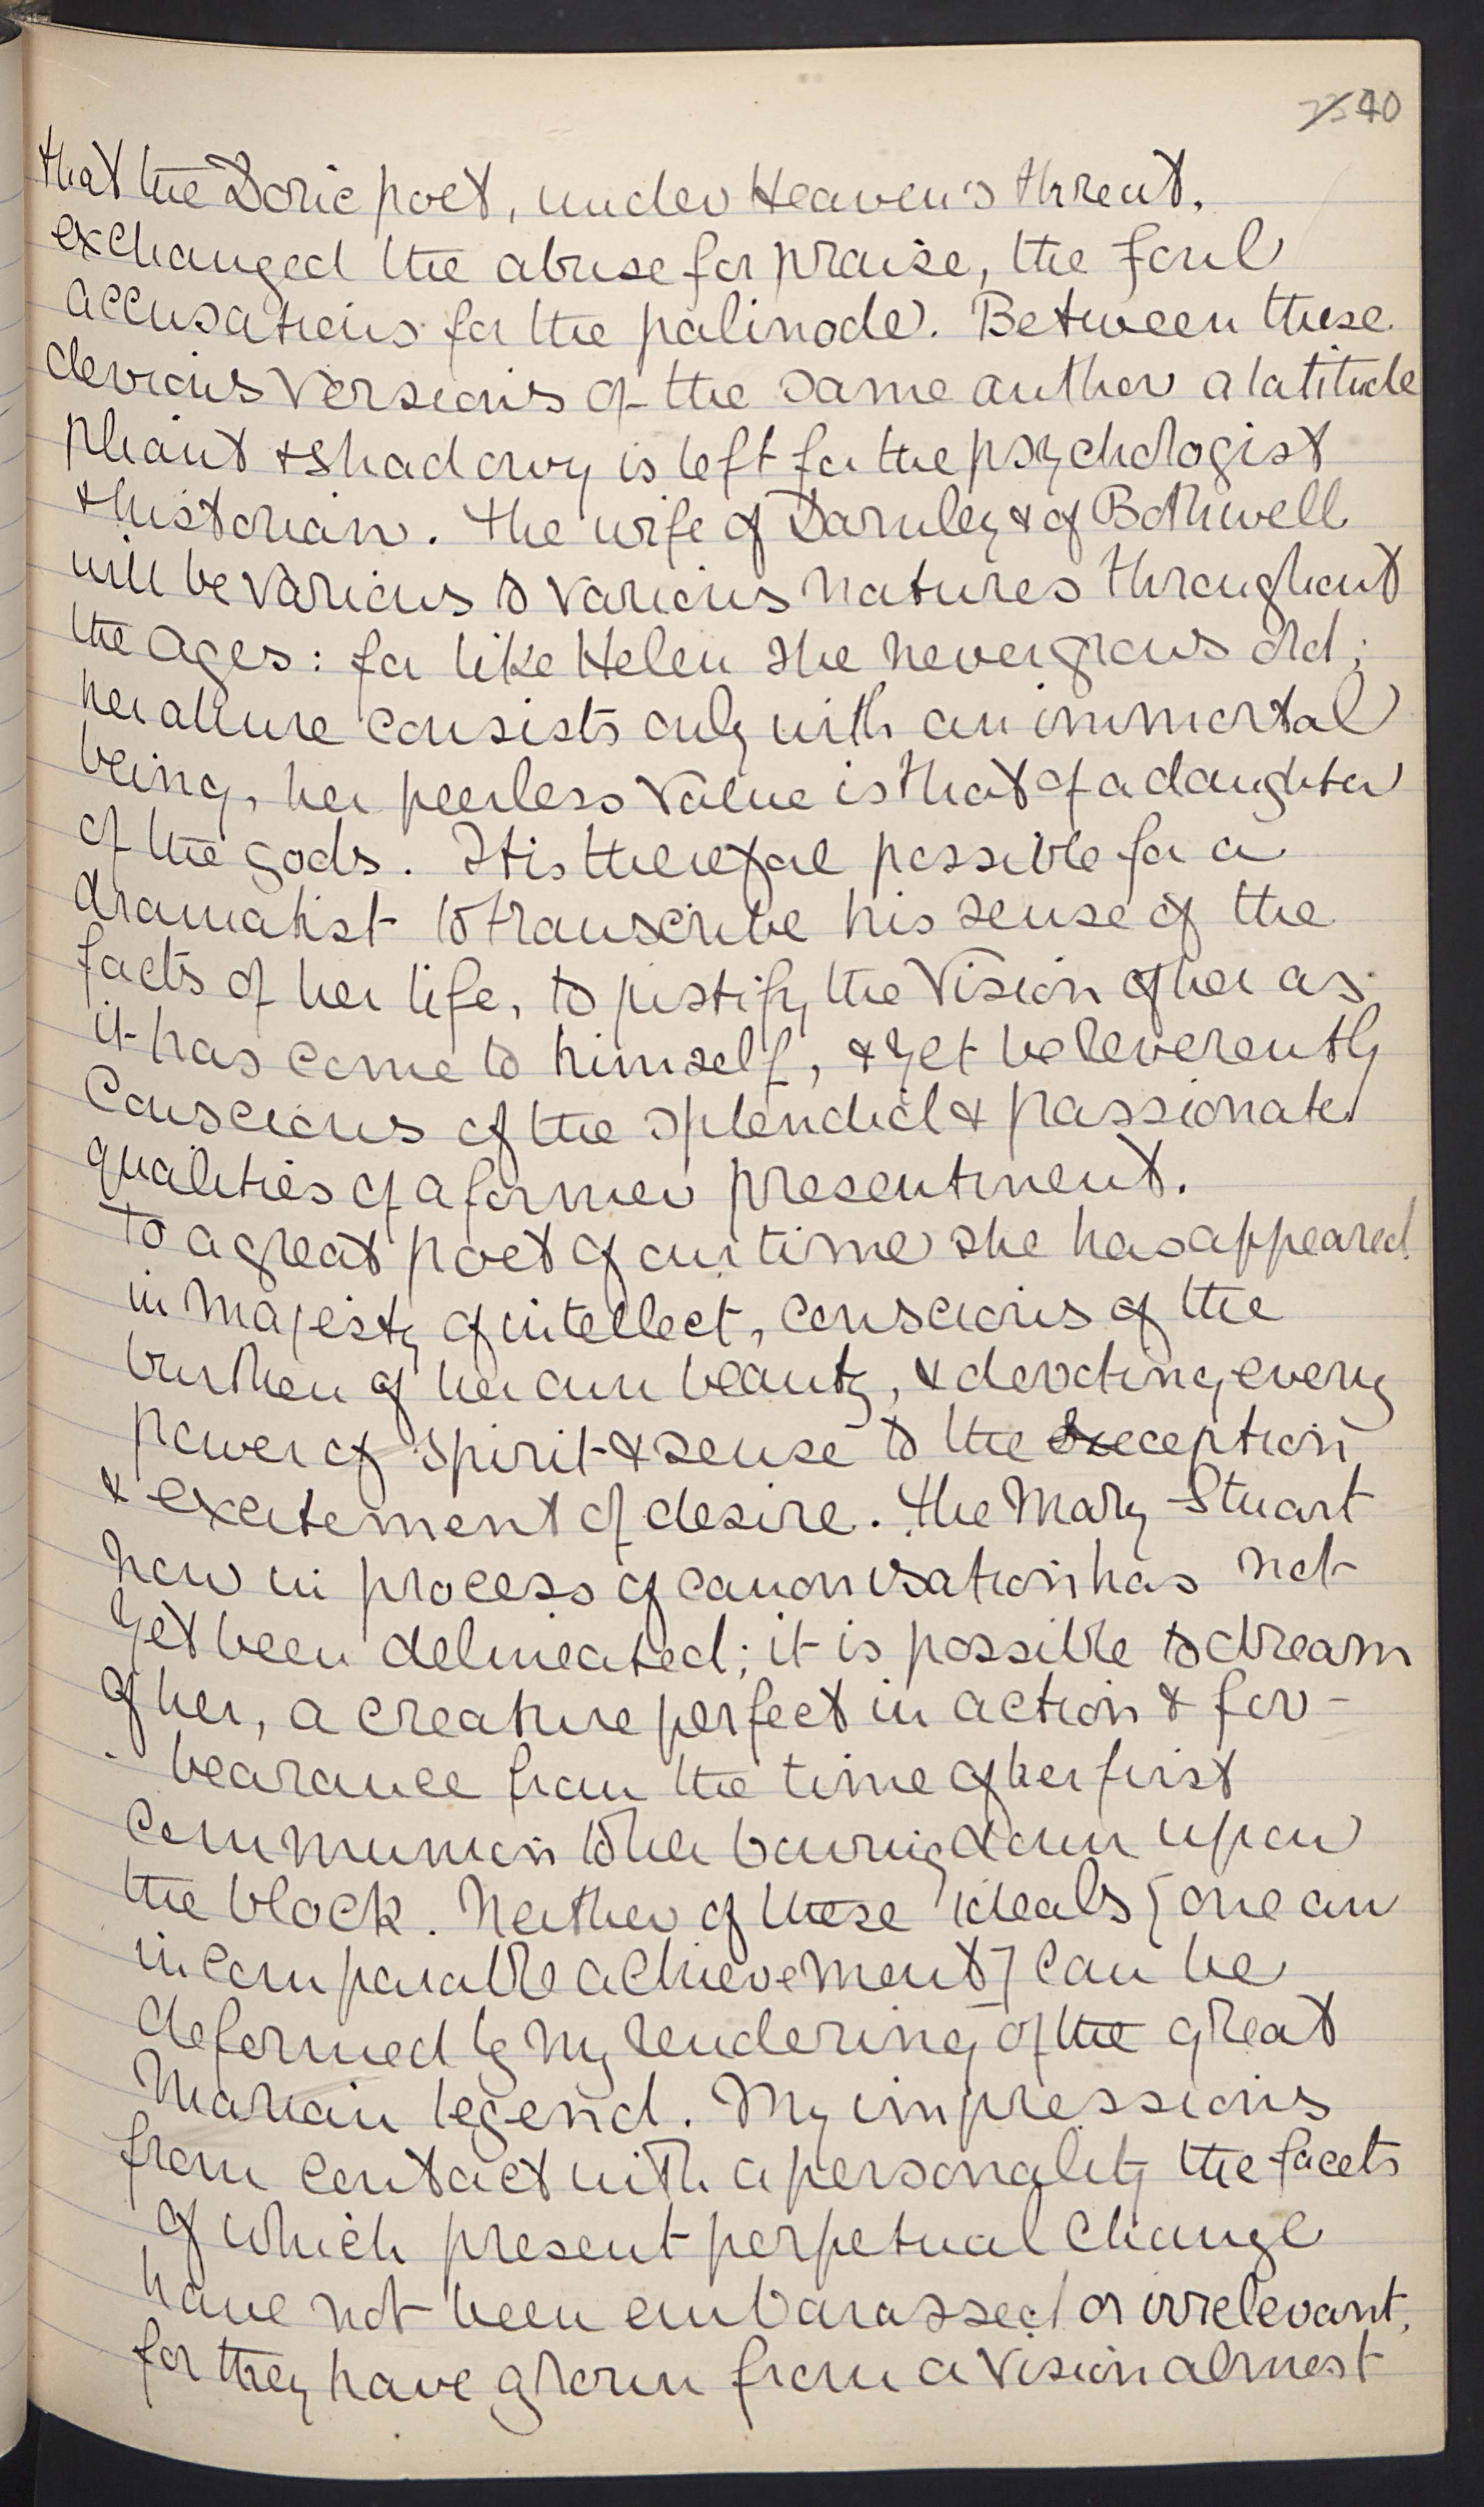 40
that the Doric poet, under Heaven's threat,
exchanged the abuse for praise, the foul
accusations for the palinode. Between these
devious versions of the same author a latitude
pliant & shadowy is left for the psychologist
& historian. The wife of Darnley & of Bothwell
will be various to various natures throughout
the ages: for like Helen she never grows old;
her allure consists only with an immortal
being, her peerless value is that of a daughter
of the gods. It is therefore possible for a
dramatist to transcribe his sense of the
facts of her life, to justify the vision of her as
it has come to himself, & yet be reverently
conscious of the splendid & passionate
qualities of a former presentment.
To a great poet of our time she has appeared
in majesty of intellect, conscious of the
burthen of her own beauty, & devoting every
power of spirit & sense to the reception
& excitement of desire. The Mary Stuart
now in process of canonisation has not
yet been delineated; it is possible to dream
of her, a creature perfect in action & for-
bearance from the time of her first
communion to her bowing down upon
the block. Neither of these ideals [one an
incomparable achievement] can be
deformed by my rendering of the great
Marian legend. My impressions
from contact with a personality the facets
of which present perpetual change
have not been embarassed or irrelevant,
for they have grown from a vision almost